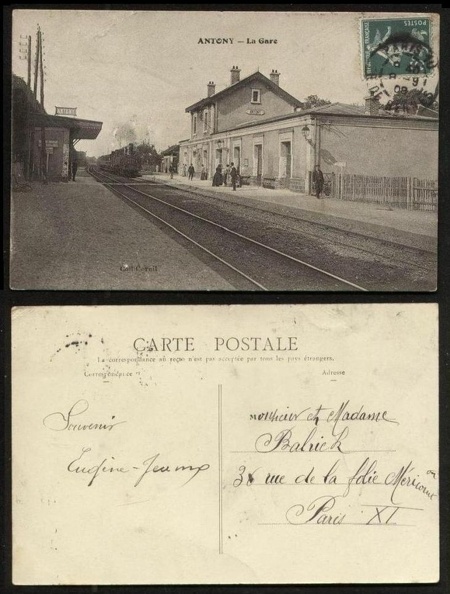 ANTONY – La Gare
POSTES
Coll. Cornil
CARTE POSTALE
La correspondance au recto n'est pas acceptée par tous les pays étrangers.
Correspondance
Adresse
Souvenir
Eugène
Monsieur et Madame
Balrick
rue de la folie Méricourt
Paris XI